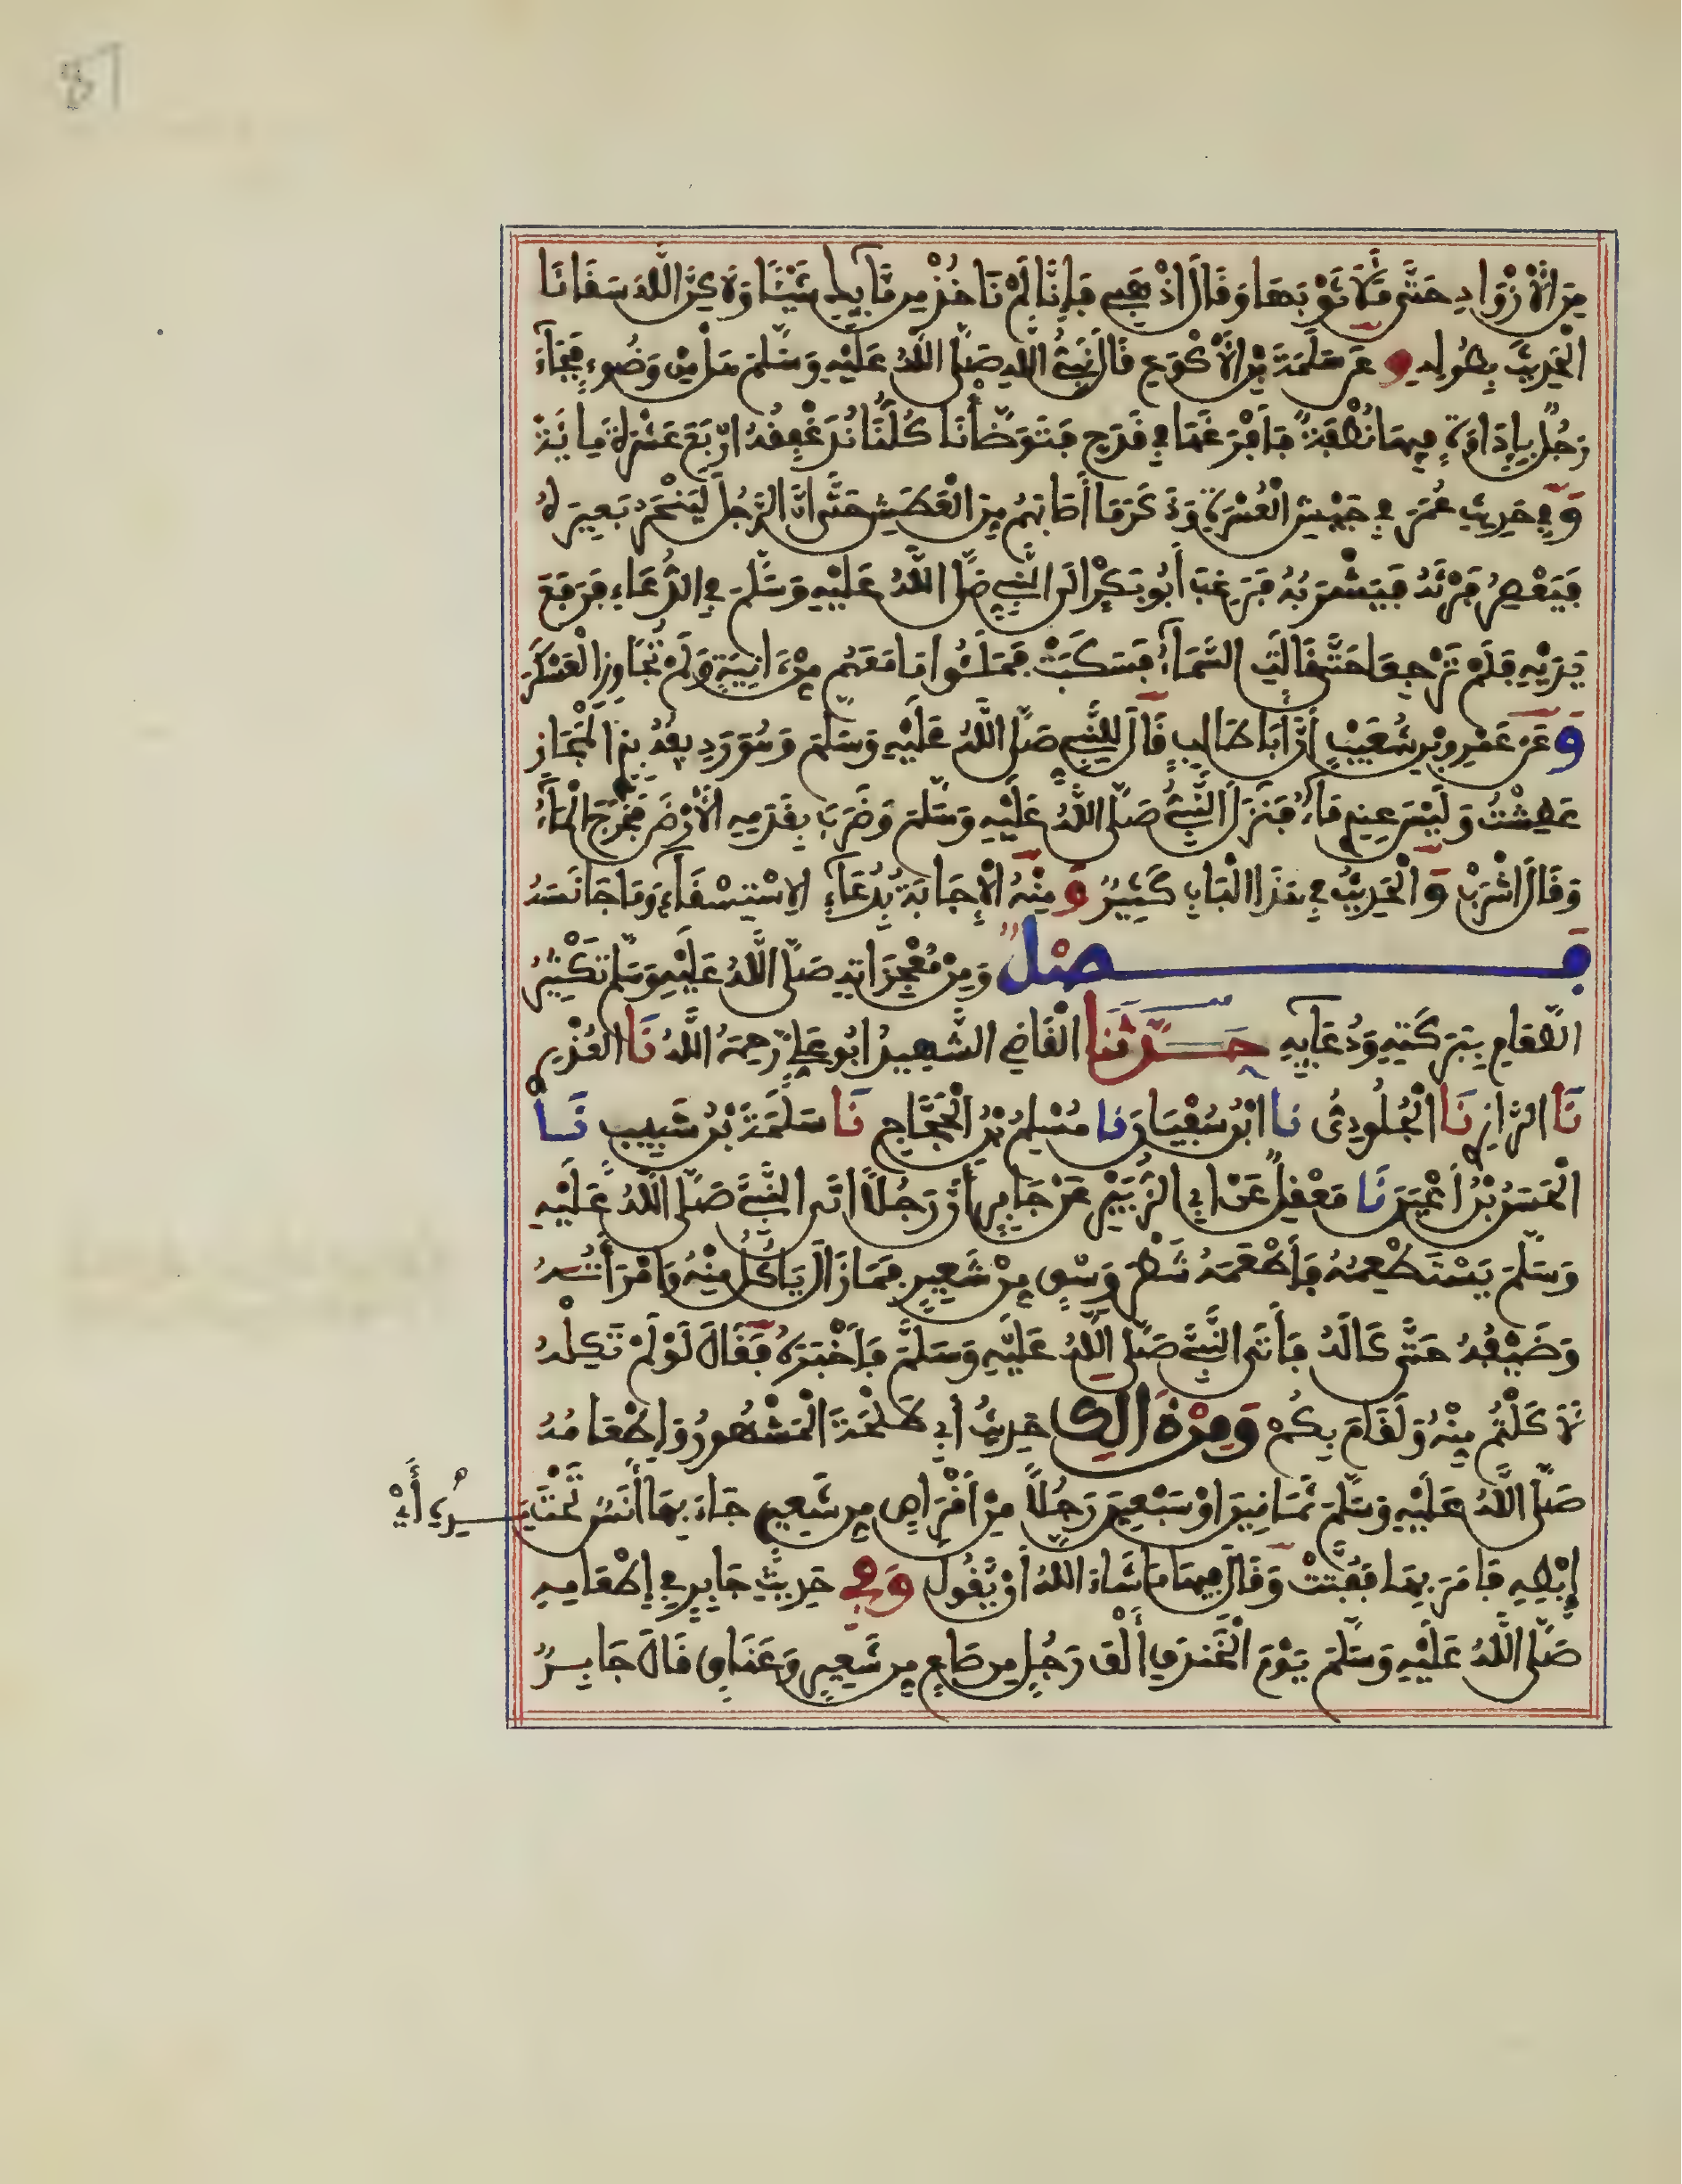 87
مِنَ الْأَزْوَادِ حَتَّى مَلَأَ ثَوْبَهَا وَقَالَ اذْهَبِي فَإِنَّا لَمْ نَاخُذْ مِن مَّآئِكِ شَيْئًا وَلَاكِنَّ اللَّهَ سَقَانَا
الْحَدِيثَ بِطُولِهِ وَ عَن سَلَمَةَ بْنِ الْأَكْوَعِ قَالَ نَبِيُّ اللَّهِ صَلَّى اللَّهُ عَلَيْهِ وَسَلَّمَ هَلْ مِنْ وَضُوءٍ فَجَآءَ
رَجُلٌ بِإِدَاوَةٍ فِيهَا نُطْفَةٌ فَأَفْرَغَهَا فِي قَدَحٍ فَتَوَضَّأْنَا كُلُّنَا نُدَغْفِقُهُ ارْبَعَ عَشْرَةَ مِايَةً
وَفِي حَدِيثِ عُمَرَ فِي جَيْشِ الْعُسْرَةِ وَذَكَرَ مَا أَصَابَهُمْ مِنَ الْعَطَشِ حَتَّى انَّ الرَّجُلَ لَيَنْحَرُ بَعِيرَهُ
فَيَعْصِرُ فَرْثَهُ فَيَشْرَبُهُ فَرَغِبَ أَبُو بَكْرٍ الَى النَّبِيِّ صَلَّى اللَّهُ عَلَيْهِ وَسَلَّمَ فِي الدُّعَاءِ فَرَفَعَ
يَدَيْهِ فَلَمْ تَرْجِعَا حَتَّى قَالَتِ السَّمَآءُ فَسَكَبَتْ فَمَلَئُوا مَا مَعَهُم مِنْ ءَانِيَةٍ وَلَمْ تُجَاوِزِ الْعَسْكَرَ
وَعَنْ عَمْرِو بْنِ شُعَيْبٍ أَنَّ أَبَا طَالِبٍ قَالَ لِلنَّبِيِّ صَلَّى اللَّهُ عَلَيْهِ وَسَلَّمَ وَهُوَ رَدِيفُهُ بِذِي الْمَجَازِ
عَطِشْتُ وَلَيْسَ عِندِي مَآءٌ فَنَزَلَ النَّبِيُّ صَلَّى اللَّهُ عَلَيْهِ وَسَلَّمَ وَضَرَبَ بِقَدَمِهِ الْأَرْضَ فَخَرَجَ الْمَآءُ
وَقَالَ اشْرَبْ وَالْحَدِيثُ فِي هَذَا الْبَابِ كَثِيرٌ وَمِنْهُ الْإِجَابَةُ بِدُعَآءِ الِاسْتِسْقَآءِ وَمَا جَانَسَهُ
فَصْل وَمِنْ مُعْجِزَاتِهِ صَلَّى اللَّهُ عَلَيْهِ وَسَلَّمَ تَكْثِيرُ
الطَّعَامِ بِبَرَكَتِهِ وَدُعَآئِهِ حَدَّثَنَا الْقَاضِي الشَّهِيدُ ابُو عَلِيٍّ رَحِمَهُ اللَّهُ نَا الْعُذْرِي
نَا الرَّازِي نَا الْجُلُودِيُّ نا ابْنُ سُفْيَانَ نا مُسْلِمُ بْنُ الْحَجَّاجِ نَا سَلَمَةُ بْنُ شَبِيبٍ نَا
الْحَسَنُ بْنُ أَعْيَنَ نَا مَعْقِلٌ عَنْ ابِي الزُّبَيْرِ عَنْ جَابِرٍ أَنَّ رَجُلًا اتَى النَّبِيَّ صَلَّى اللَّهُ عَلَيْهِ
وَسَلَّمَ يَسْتَطْعِمُهُ فَأَطْعَمَهُ شَطْرَ وَسْقٍ مِنْ شَعِيرٍ فَمَا زَالَ يَاكُلُ مِنْهُ وَامْرَأَتُهُ
وَضَيْفُهُ حَتَّى كَالَهُ فَأَتَى النَّبِيَّ صَلَّى اللَّهُ عَلَيْهِ وَسَلَّمَ فَأَخْبَرَهُ فَقَالَ لَوْ لَمْ تَكِلْهُ
لَأَكَلْتُمْ مِنْهُ وَلَقَامَ بِكُمْ وَمِنْ ذَالِكَ حَدِيثُ أَبِي طَلْحَةَ الْمَشْهُورُ وَإِطْعَامُهُ
صَلَّى اللَّهُ عَلَيْهِ وَسَلَّمَ ثَمَانِينَ اوْ سَبْعِينَ رَجُلًا مِنْ أَقْرَاصٍ مِن شَعِيرٍ جَاءَ بِهَا أَنَسٌ تَحْتَ يَدِهِ أَيْ
إِبْطِهِ فَأَمَرَ بِهَا فَفُتَّتْ وَقَالَ فِيهَا مَا شَاءَ اللَّهُ أَنْ يَّقُولَ وَفِي حَدِيثِ جَابِرٍ فِي إِطْعَامِهِ
صَلَّى اللَّهُ عَلَيْهِ وَسَلَّمَ يَوْمَ الْخَنْدَقِ أَلْفَ رَجُلٍ مِن صَاعِ مِن شَعِيرٍ وَعَنَاقٍ قَالَ جَابِرٌ